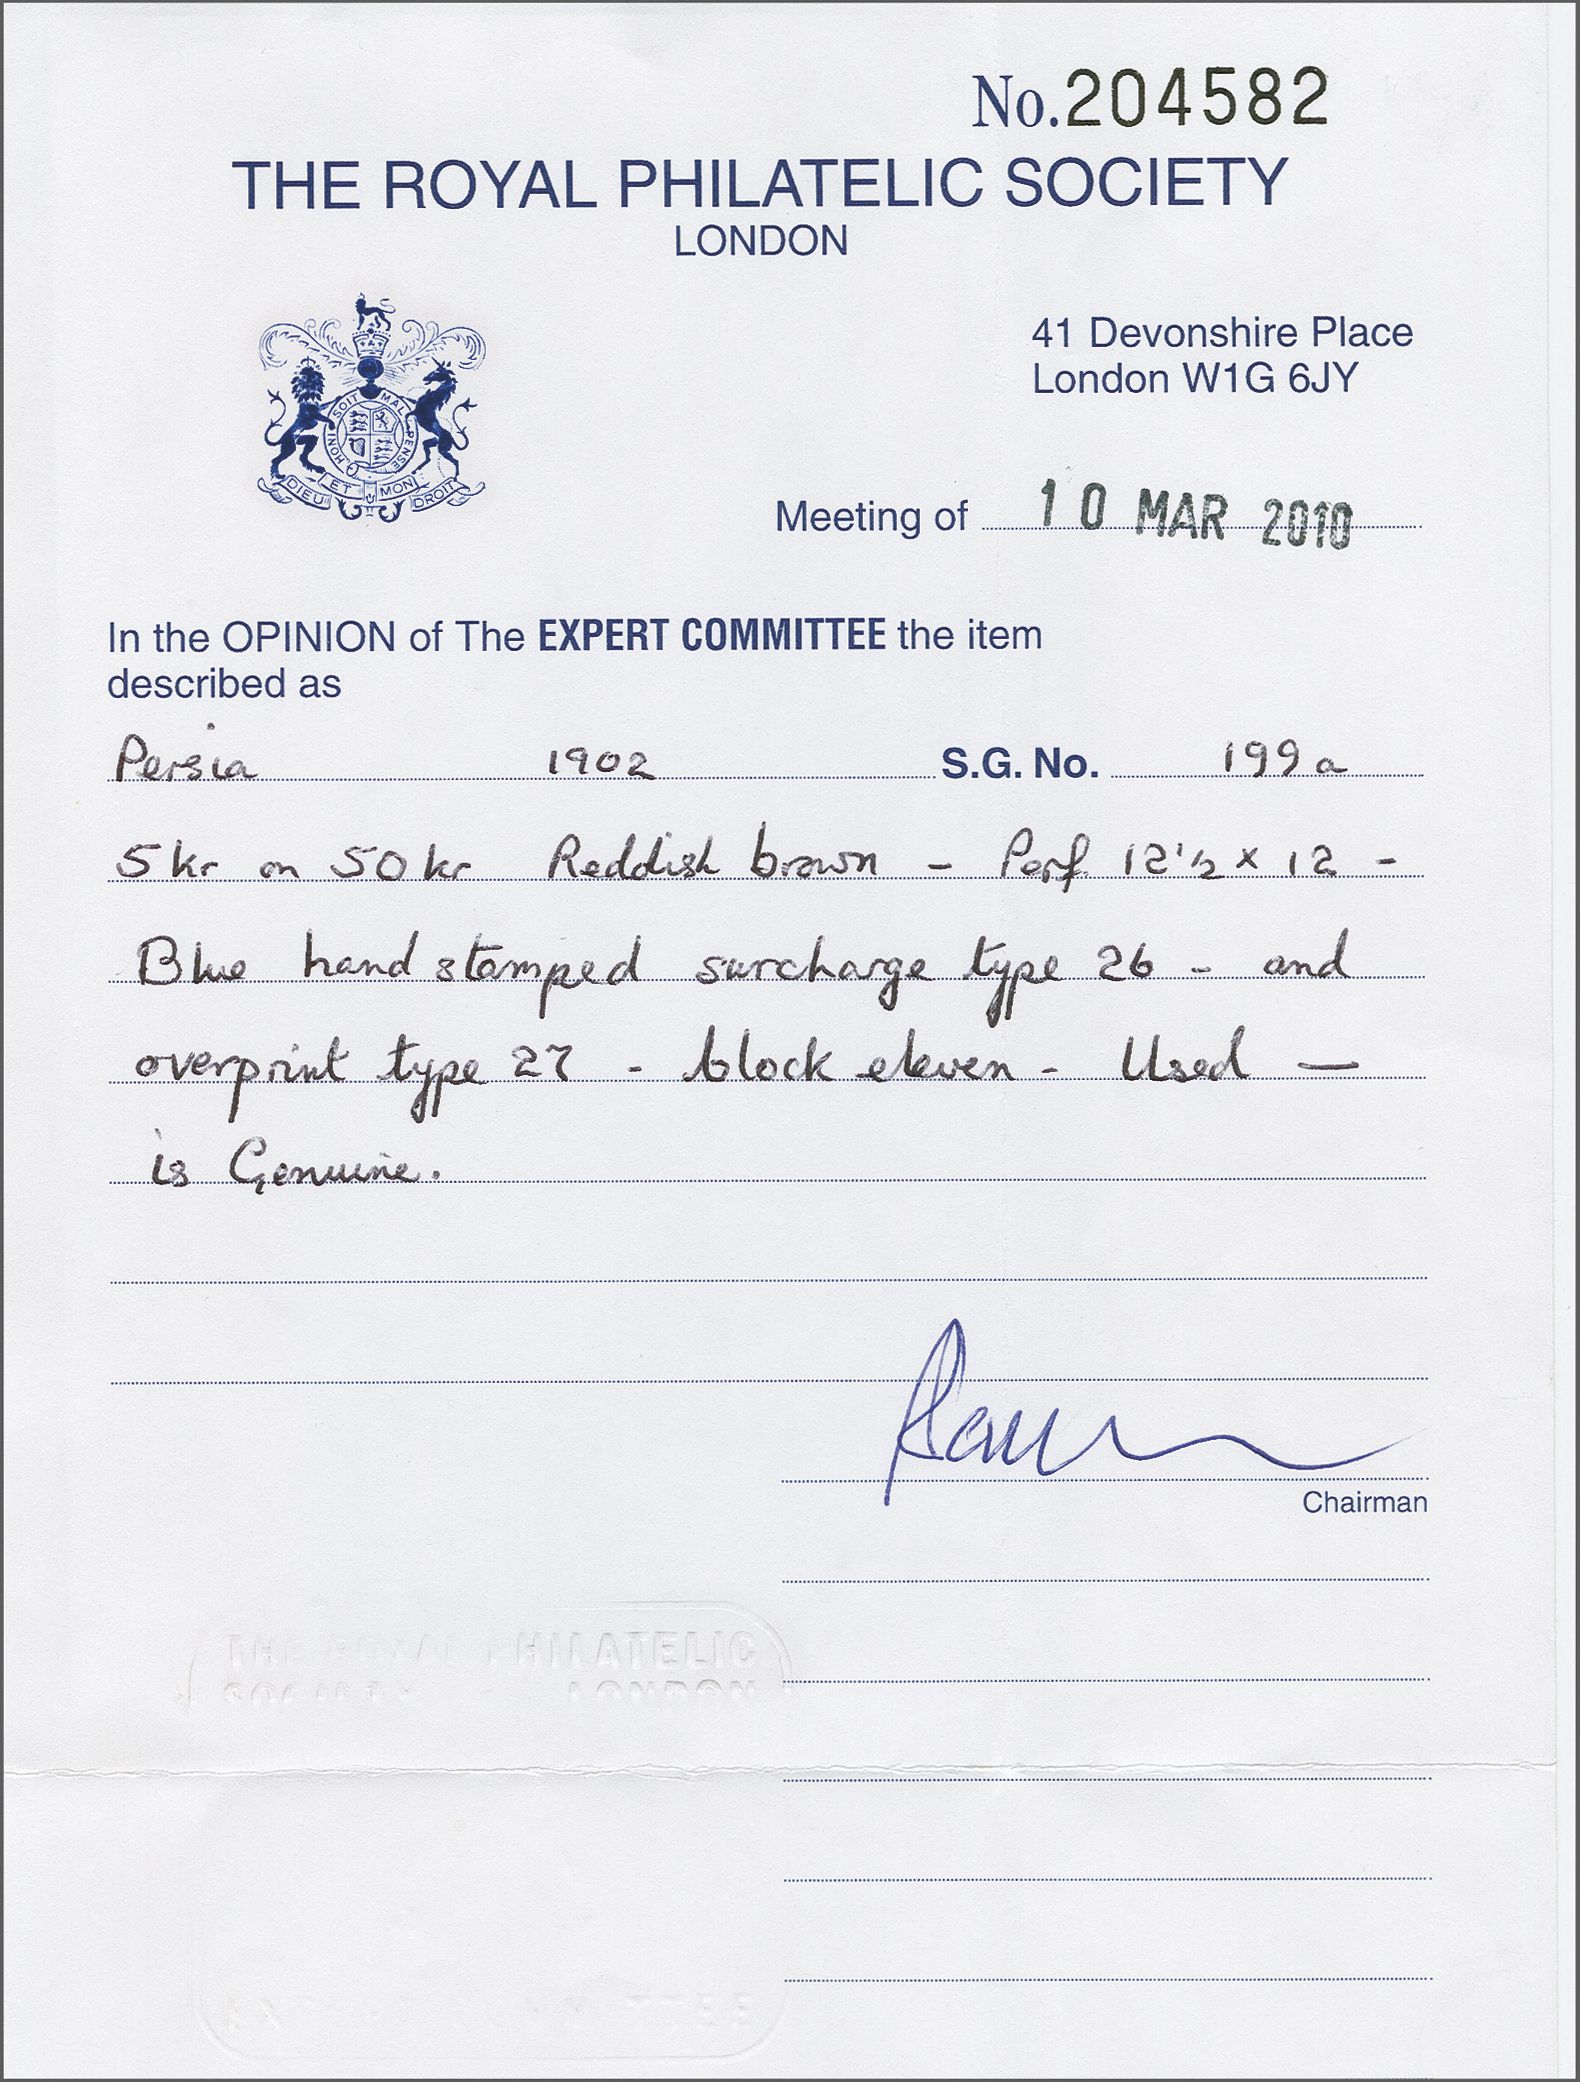 No.204582
THE ROYAL PHILATELIC SOCIETY
LONDON
41 Devonshire Place
London W1G 6JY
HONI SOIT MAL PENSE
DIEU ET MON DROIT
Meeting of 10 MAR 2010
In the OPINION of The EXPERT COMMITTEE the item
described as
Persia 1902 S.G. No. 199a
5kr on 50kr Reddish brown - Perf. 12½ x 12 -
Blue hand stamped surcharge type 26 - and
overprint type 27 - block eleven - Used —
is Genuine.
Chairman
THE ROYAL PHILATELIC
SOCIETY LONDON